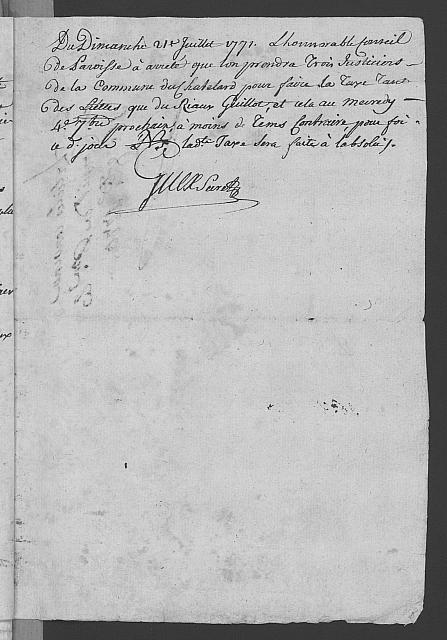 Du Dimanche 21e Juillet 1771. L'honnorable Conseil
de Paroisse à arreté que l'on prendra Trois Justiciers
de la Commune du Chatelard pour faire la Taxe Tant
des que du Riaux Guillot, et cela au mecredy
4e 7bre prochain, à moins de Tems Contraire, pour foi
e dt jour ladte Taxe Sera faite à l'absolu.
Secret